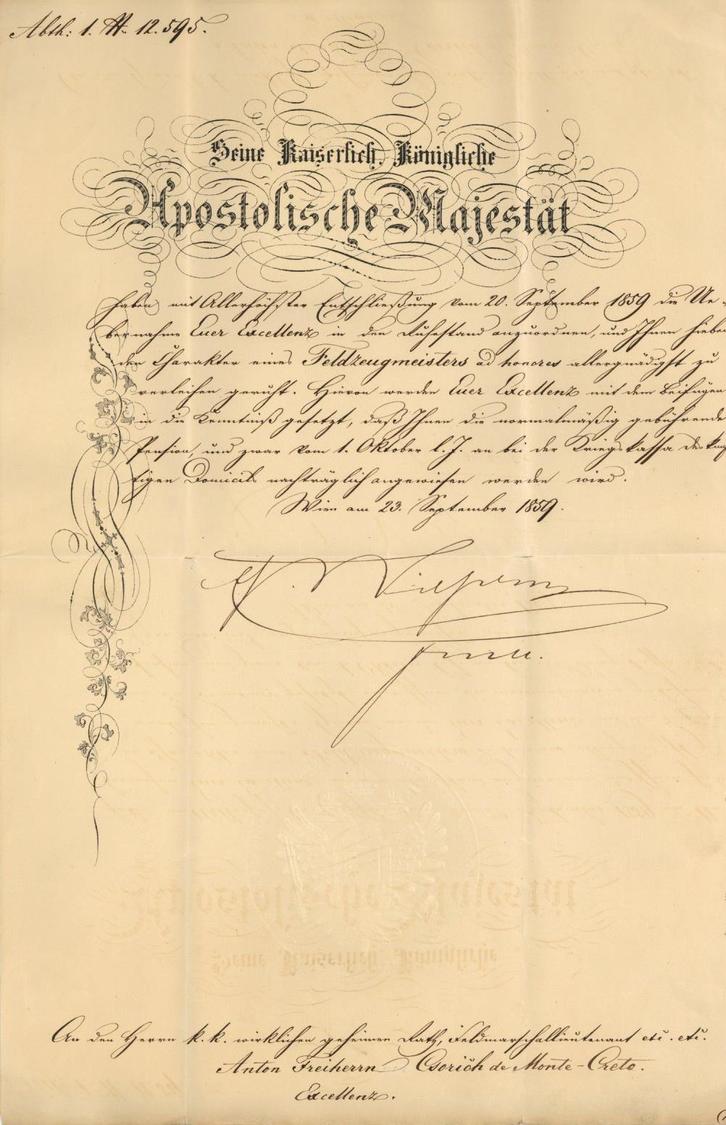 Abth: 1. N. 12.595.
Seine Kaiserlich, Königliche
Apostolische Majestät
haben mit Allerhöchster Entschließung vom 20. September 1859 die Ue-
bernahme Euer Excellenz in den Ruhestand anzuordnen, und Ihnen hiebei
den Charakter eines Feldzeugmeisters ad honores allergnädigst zu
verleihen geruht. Hievon werden Euer Excellenz mit dem Beifügen
in die Kenntniß gesetzt, daß Ihnen die normalmäßig gebührende
Pension, und zwar vom 1. Oktober l. J. an bei der Kriegskassa des
tigen Domicils nachträglich angewiesen werden wird.
Wien am 23. September 1859.
An den Herrn k. k. wirklichen geheimen Rath, Feldmarschallieutenant etc. etc.
Anton Freiherrn Csorich de Monte-Creto.
Excellenz.